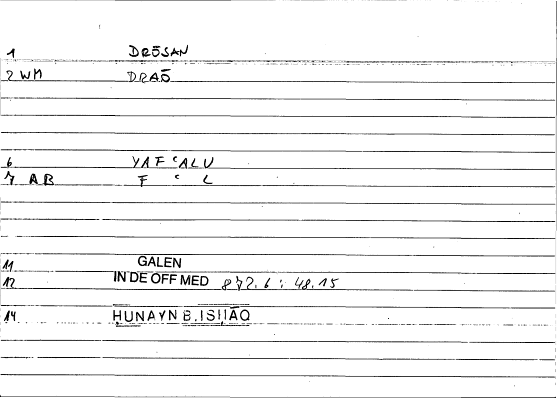 1 DRŌSAN
2 WM DRAŌ
6 YAFʿALU
7 AB F ʿ L
11 GALEN
12 IN DE OFF MED 872.6 : 48.15
14 HUNAYN B. ISḤĀQ